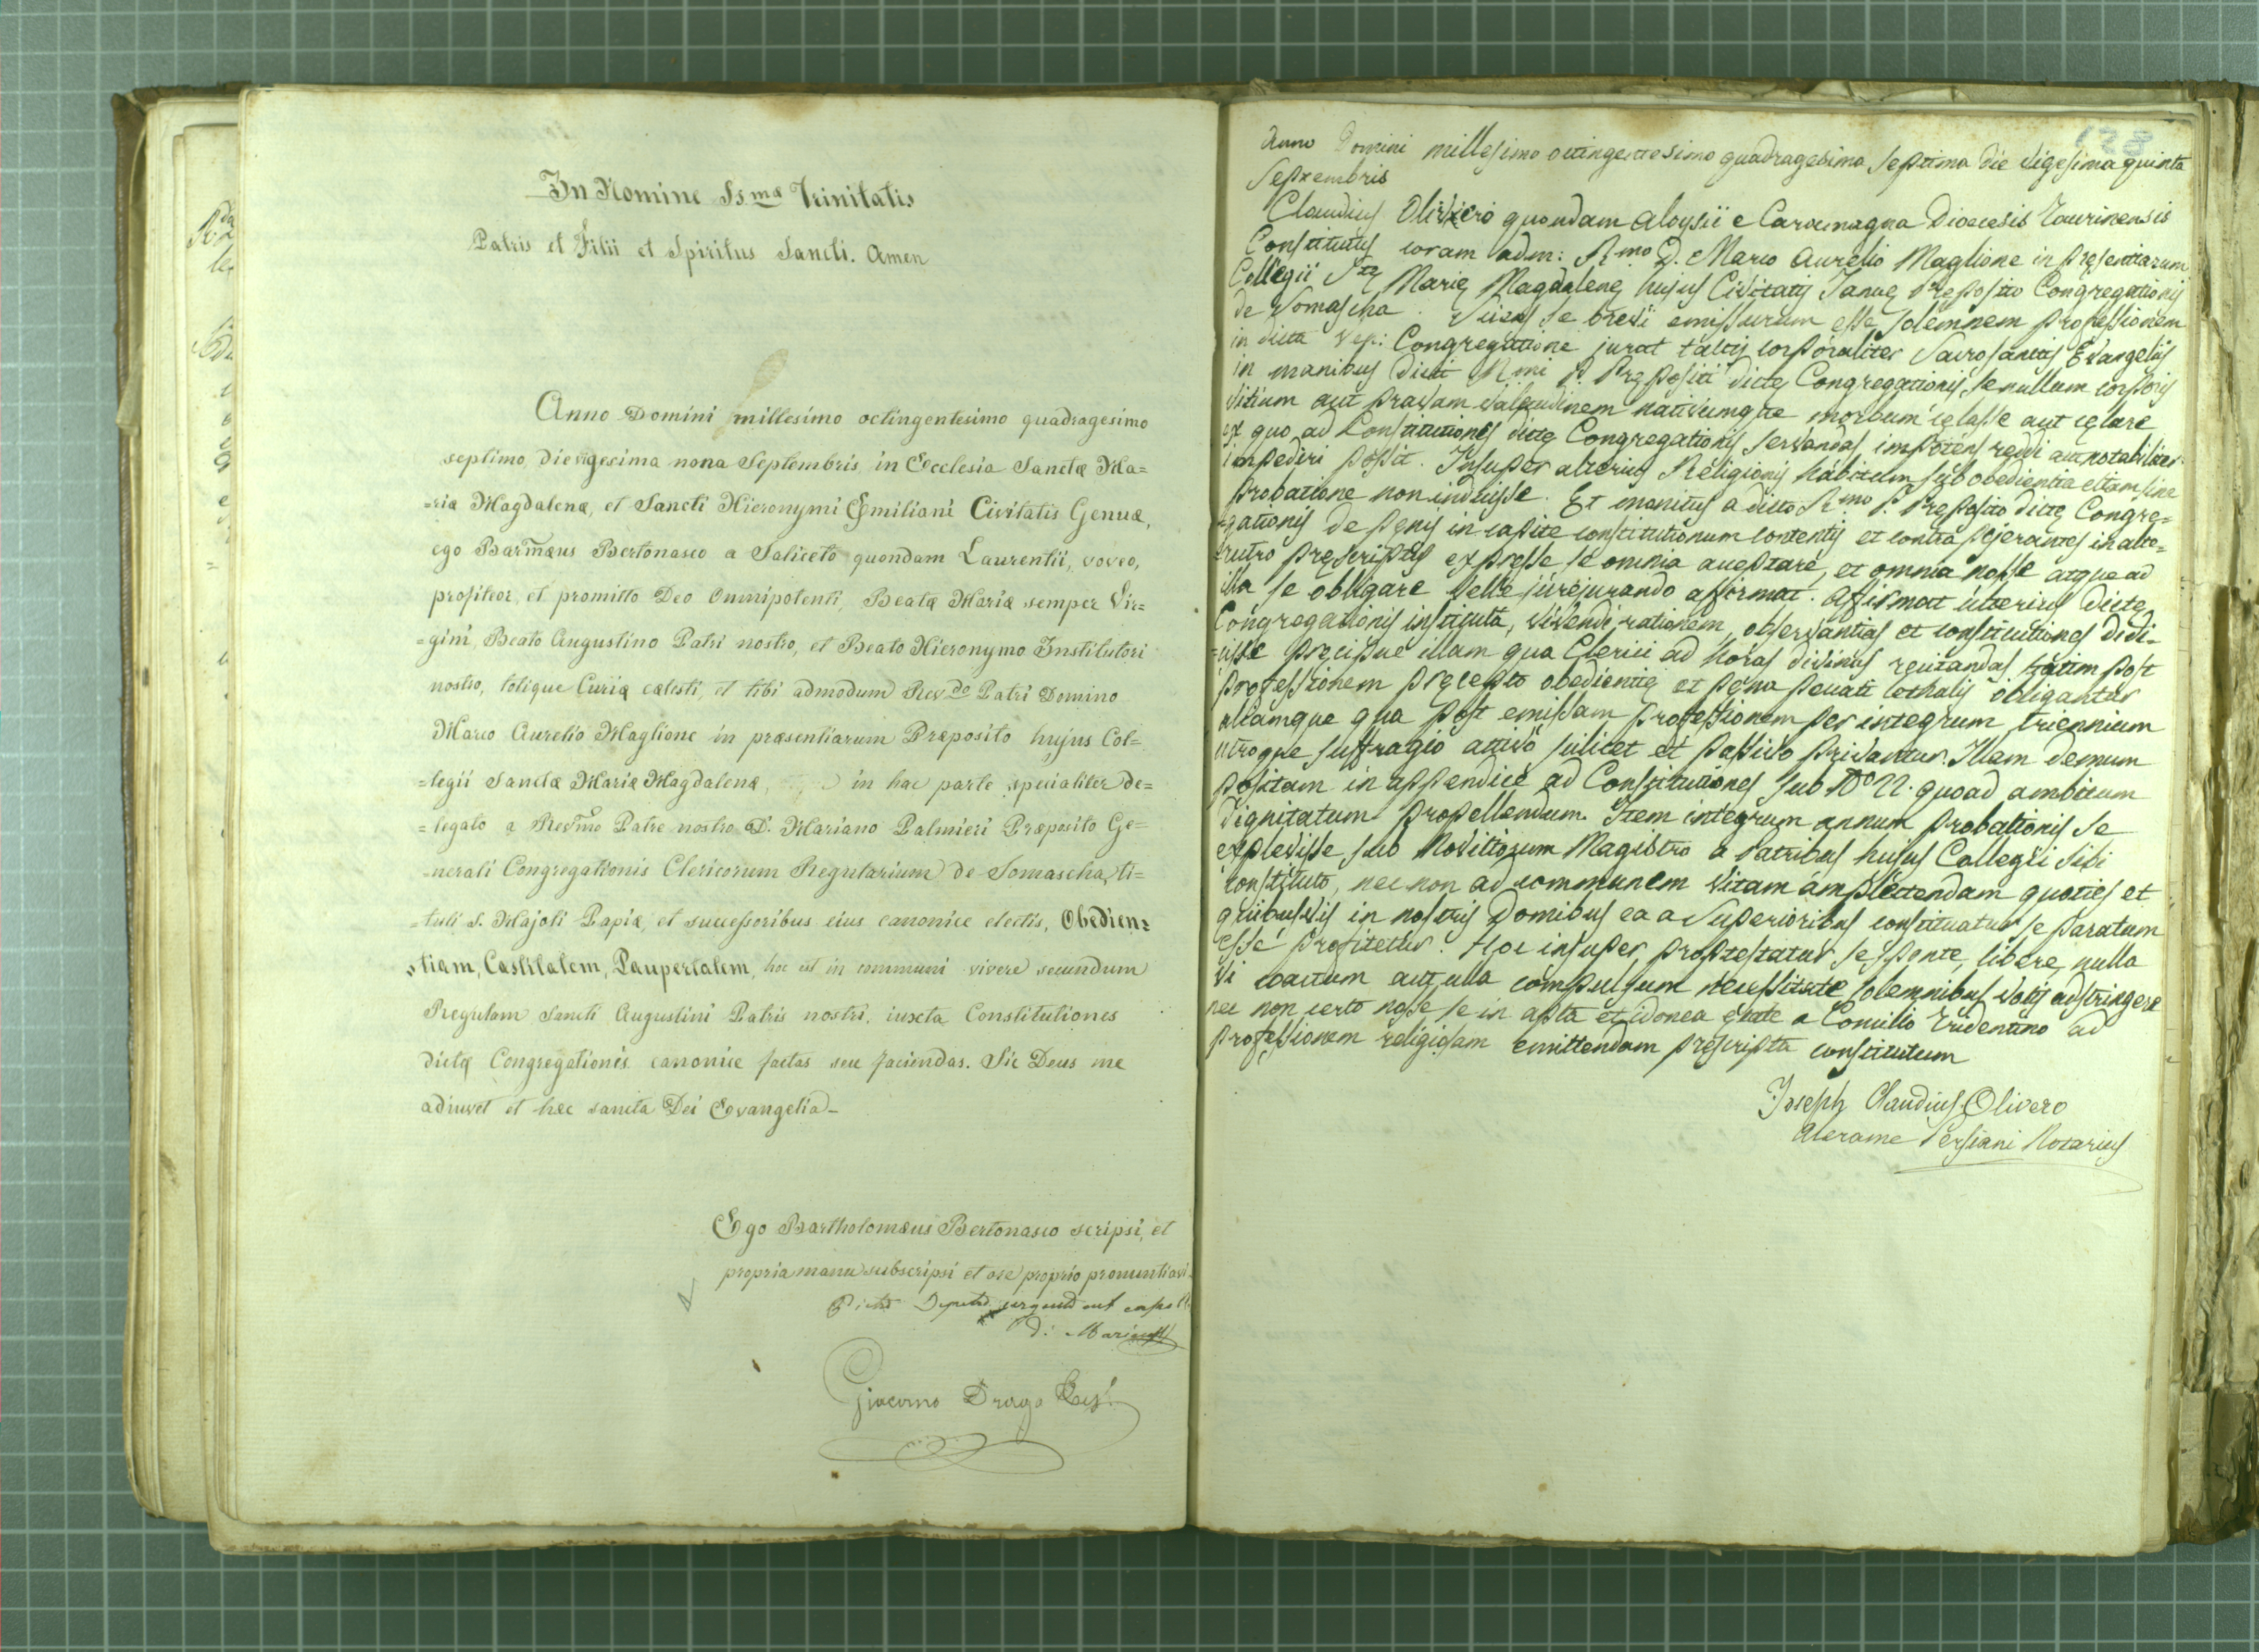 In Nomine Ssmæ Trinitatis
Patris et Filii et Spiritus Sancti. Amen
Anno Domini millesimo octingentesimo quadragesimo
septimo, die vigesima nona Septembris, in Ecclesia Sanctæ Ma=
=riæ Magdalenæ, et Sancti Hieronymi Emiliani Civitatis Genuæ,
ego Barm̃æus Bertonasco a Saliceto quondam Laurentii, voveo,
profiteor, et promitto Deo Omnipotenti, Beatæ Mariæ semper Vir=
=gini, Beato Augustino Patri nostro, et Beato Hieronymo Institutori
nostro, totique Curiæ cælesti, et tibi admodum Revdo Patri Domino
Marco Aurelio Maglione in præsentiarum Præposito hujus Col=
=legii Sanctæ Mariæ Magdalenæ, in hac parte specialiter de=
=legato a Revmo Patre nostro D. Mariano Palmieri Præposito Ge=
=nerali Congregationis Clericorum Regularium de Somascha, ti=
=tuli S. Majoli Papiæ, et successoribus eius canonice electis, Obedien=
=tiam, Castitatem, Paupertatem, hoc est in communi vivere secundum
Regulam Sancti Augustini Patris nostri, iuxta Constitutiones
dictæ Congregationis canonice factas seu faciendas. Sic Deus me
adiuvet et hæc sancta Dei Evangelia_
Ego Bartholomæus Bertonasco scripsi, et
propria manu subscripsi et ore proprio pronuntiavi.
Giacomo Drago
138
Anno Domini millesimo octingentesimo quadragesimo septimo die vigesima quinta
Septembris
Claudius Olivero quondam Aloysii e Caramagna Dioecesis Taurinensis
Constitutus coram adm: Rmo D. Marco Aurelio Maglione in presentiarum
Collegii Stę Marię Magdalenę hujus Civitatis Januę Preposito Congregationis
de Somascha. Sciens se brevi emissurum esse solemnem professionem
in dicta Congregatione jurat tactis corporaliter Sacrosanctis Evangeliis
in manibus dicti Rmi P. Prępositi dictę Congregationis, se nullum corporis
vitium aut pravam valetudinem nativumque morbum cęlasse aut cęlare
ex quo ad Constitutiones dictę Congregationis servandas impotens reddi aut notabiliter
impediri possit. Insuper alterius Religionis habitum sub obedientia etiam sine
probatione non induisse. Et monitus a dicto Rmo P. Preposito dictę Congre=
=gationis de pęnis in capite constitutionum contentis et contra pejerantes in alte=
=rutro pręscriptis expresse se omnia acceptare, et omnia nosse atque ad
illa se obligare velle jurejurando affirmat. Affirmat ulterius dictę
Congregationis instituta, vivendi rationem, observantias et constitutiones didi=
=cisse pręcipue illam qua Clerici ad horas divinas recitandas statim post
professionem pręcepto obedientię et pęna peccati lethalis obligantur
aliamque qua post emissam professionem per integrum triennium
utroque suffragio activo scilicet et passivo privantur. Illam demum
positam in appendice ad Constitutiones sub No 22. quoad ambitum
dignitatum propellendum. Item integrum annum probationis se
explevisse sub Novitiorum Magistro a Patribus hujus Collegii sibi
constituto, nec non ad communem vitam amplectendam quoties et
quibusvis in nostris Domibus ea a Superioribus constituatur se paratum
esse profitetur. Hoc insuper protestatur se sponte, libere, nulla
vi coactum aut ulla compulsum necessitate solemnibus votis adstringere
nec non certo nosse se in apta et idonea ętate a Concilio Tridentino ad
professionem religiosam emittendam prescripta constitutum
Joseph Claudius Olivero
Alerame Persiani Notarius